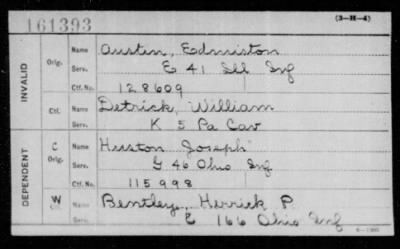 161393 (3-H-4)
INVALID
Orig. Name Austin, Edmiston
Serv. E 41 Ill Inf
Ctf. No. 128609
Ctf. Name Detrick, William
Serv. K 5 Pa Cav
DEPENDENT
C Orig. Name Huston Joseph
Serv. G 46 Ohio Inf
Ctf. No. 115998
W Ctf. Name Bentley, Herrick P.
Serv. E 166 Ohio Inf